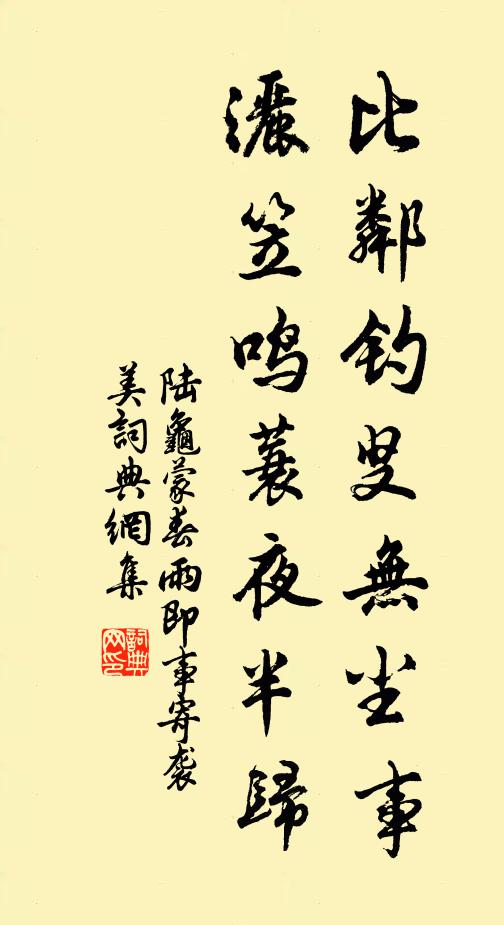 比鄰釣叟無塵事
灑笠鳴蓑夜半歸
陆龜蒙春雨即事寄袭
美詞典網集
詞典
网印